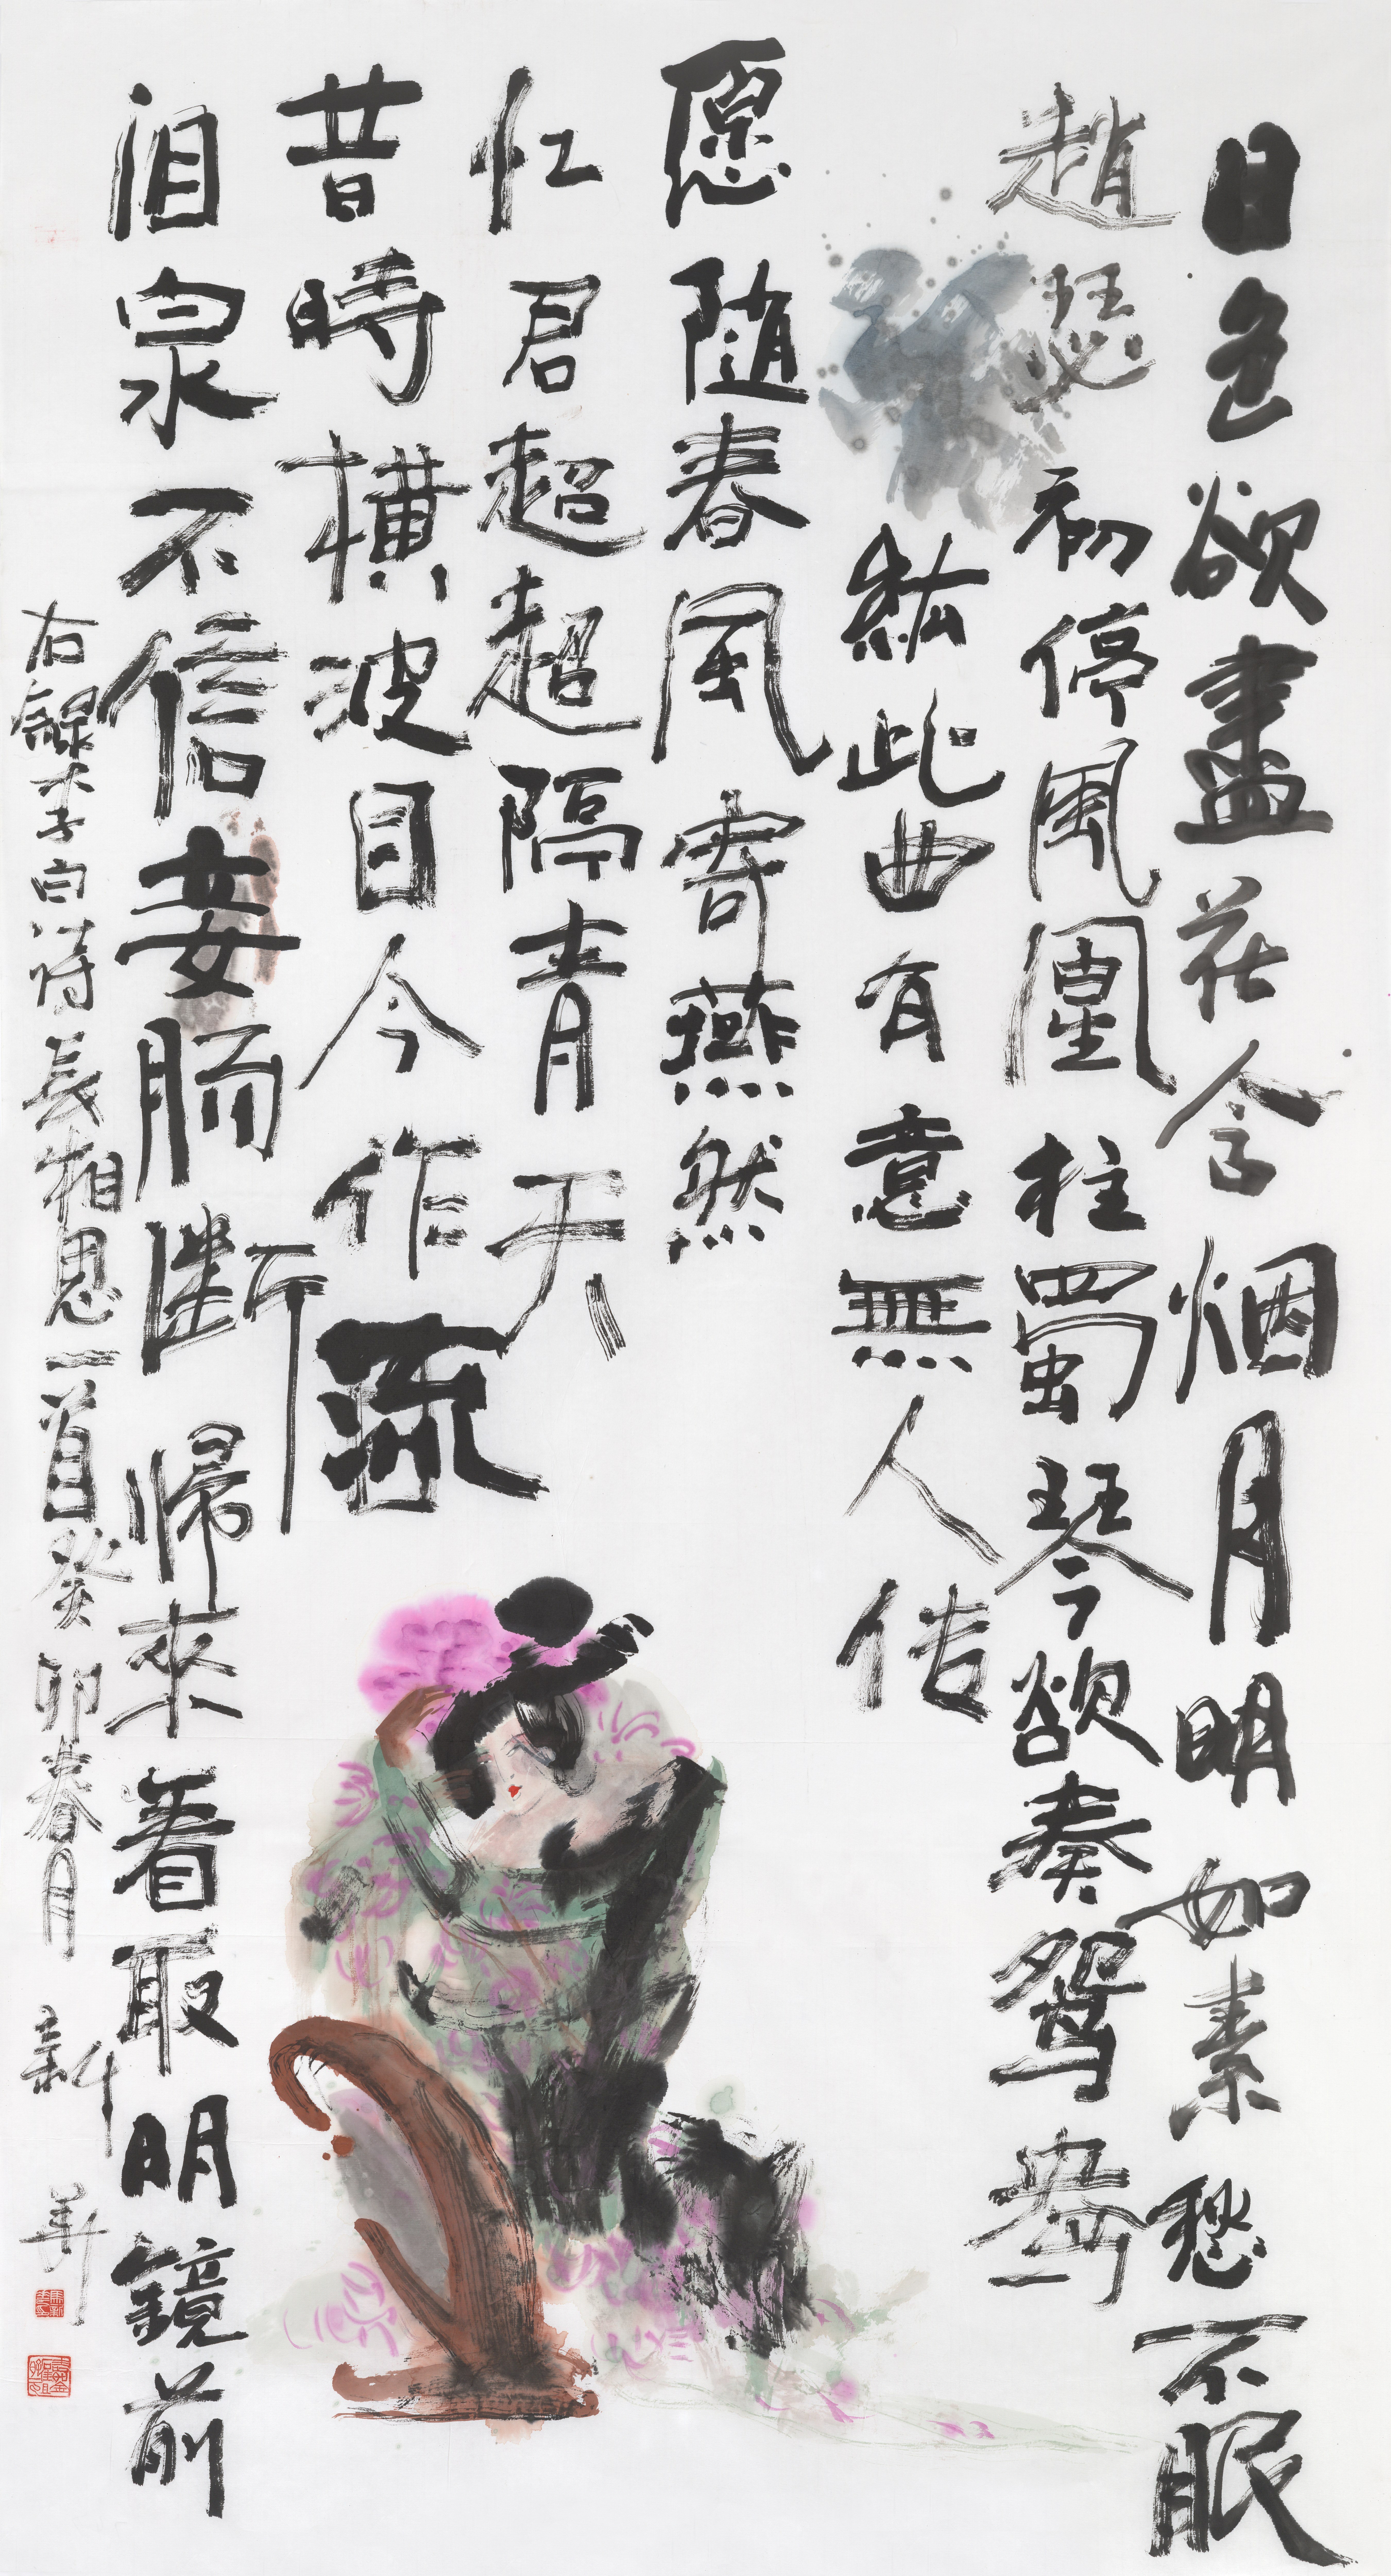 日色欲盡花含烟月明如素愁不眠
趙瑟初停鳳凰柱蜀琴欲奏鴛鴦
絃此曲有意無人传
愿随春風寄燕然
忆君超超隔青天
昔時橫波目今作流
泪泉不信妾腸斷帰來看取明鏡前
右録李白詩長相思一首癸卯春月 新華